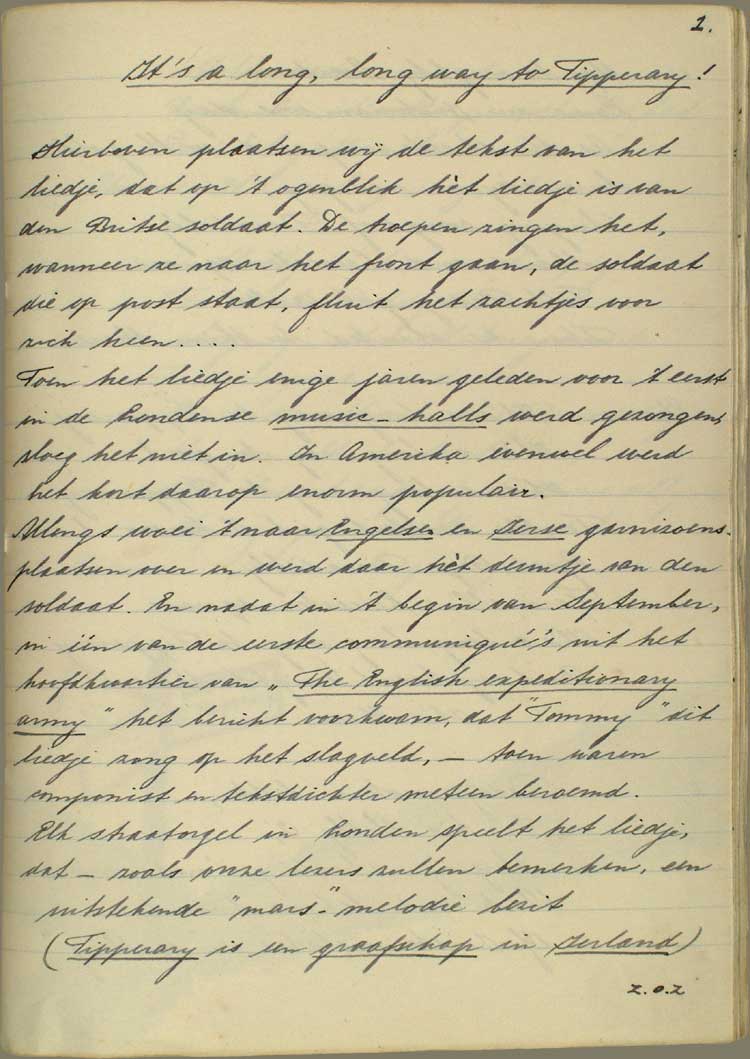 1.
It's a long, long way to Tipperary!
Hierboven plaatsen wij de tekst van het
liedje, dat op 't ogenblik hèt liedje is van
den Britse soldaat. De troepen zingen het,
wanneer ze naar het front gaan, de soldaat
die op post staat, fluit het zachtjes voor
zich heen....
Toen het liedje enige jaren geleden voor 't eerst
in de Londense music-halls werd gezongen,
sloeg het niet in. In Amerika evenwel werd
het kort daarop enorm populair.
Allengs woei 't naar Engelse en Ierse garnizoens-
plaatsen over en werd daar hèt deuntje van den
soldaat. En nadat in 't begin van September,
in één van de eerste communiqué's uit het
hoofdkwartier van „The English expeditionary
army" het bericht voorkwam, dat "Tommy" dit
liedje zong op het slagveld, — toen waren
componist en tekstdichter meteen beroemd.
Elk straatorgel in Londen speelt het liedje,
dat — zoals onze lezers zullen bemerken, een
uitstekende "mars"-melodie bezit
(Tipperary is een graafschap in Ierland)
z.o.z